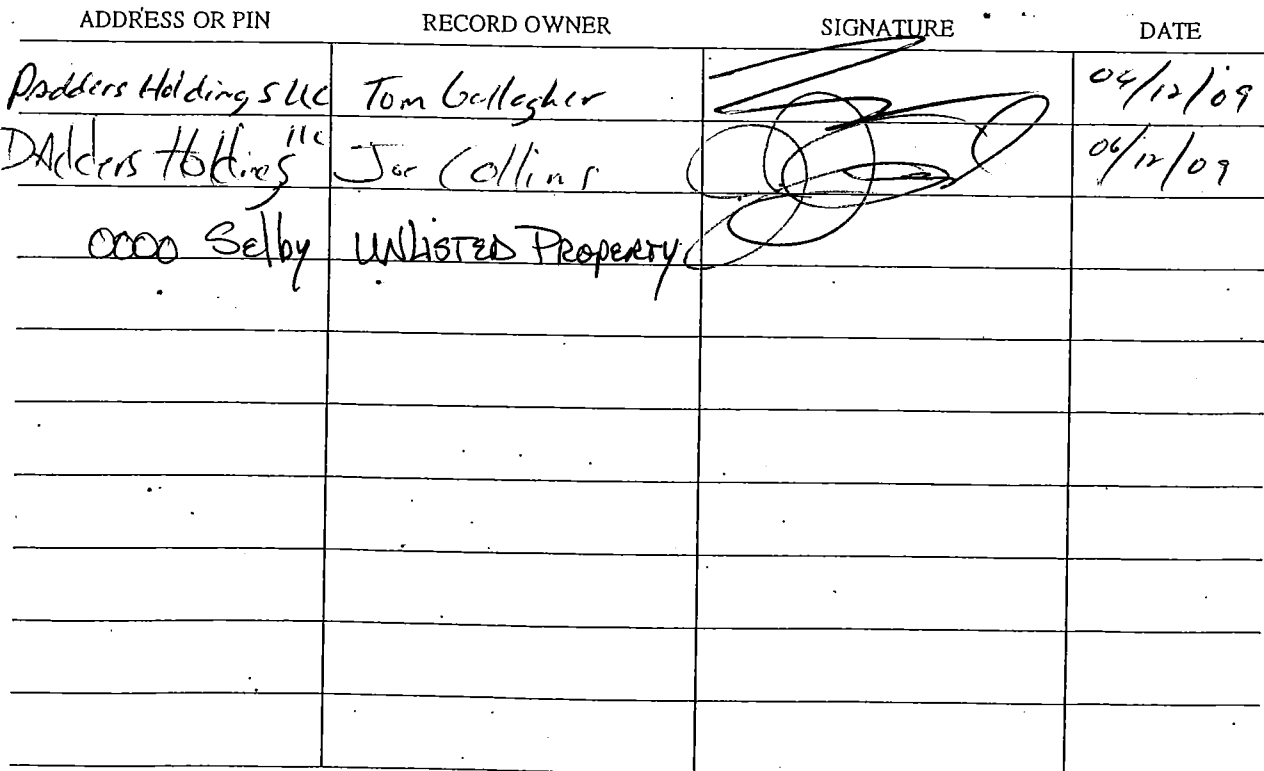 ADDRESS OR PIN RECORD OWNER SIGNATURE DATE
Dadders Holdings LLC Tom Gallagher 04/12/09
DAdders Holdings llc Joe Collins 06/12/09
0000 Selby UNLISTED PROPERTY